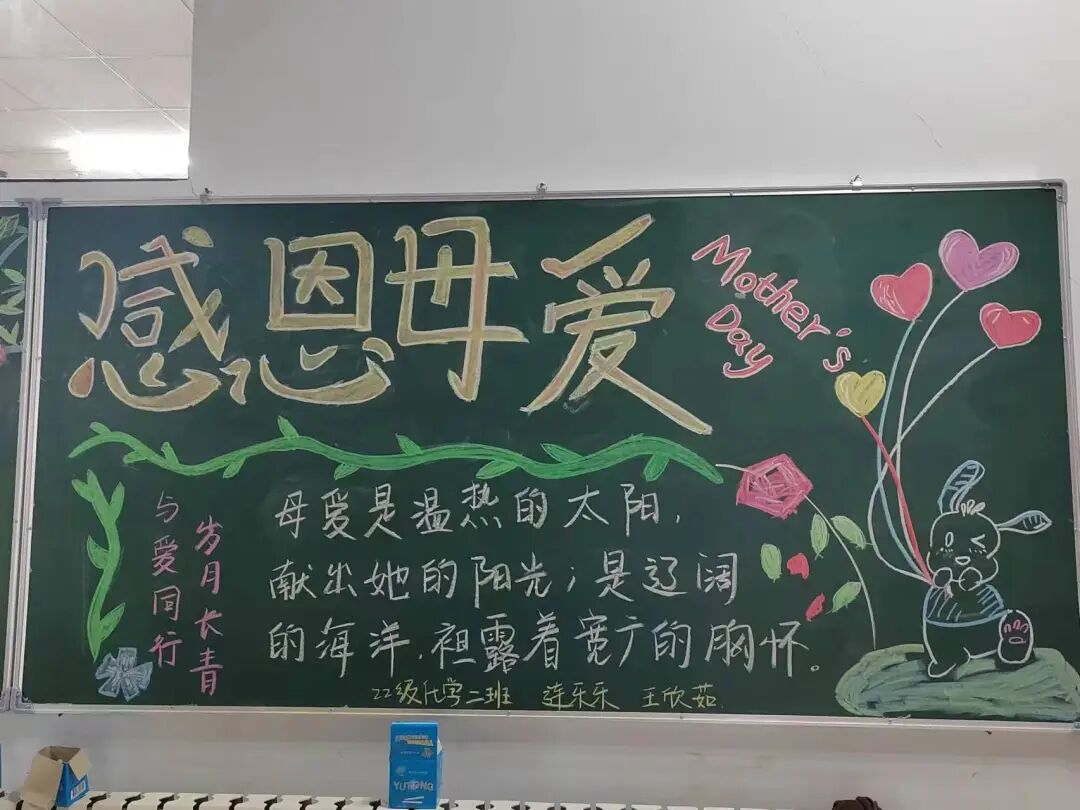 感恩母爱
Mother's
Day
岁月长青
与爱同行
母爱是温热的太阳,
献出她的阳光;是辽阔
的海洋,袒露着宽广的胸怀。
22级化学二班 连乐乐 王欣茹
YUTONG